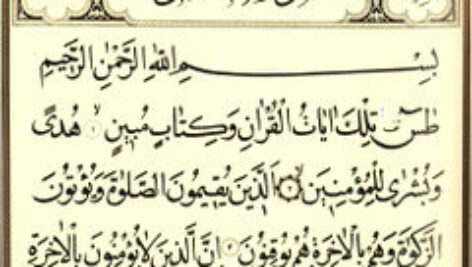 بِسْمِ اللهِ الرَّحْمٰنِ الرَّحٖيمِ
طٰسٓ تِلْكَ اٰيَاتُ الْقُرْاٰنِ وَكِتَابٍ مُبٖينٍ ۙ ١ هُدًى
وَبُشْرٰى لِلْمُؤْمِنٖينَ ۙ ٢ اَلَّذٖينَ يُقٖيمُونَ الصَّلٰوةَ وَيُؤْتُونَ
الزَّكٰوةَ وَهُمْ بِالْاٰخِرَةِ هُمْ يُوقِنُونَ ٣ اِنَّ الَّذٖينَ لَا يُؤْمِنُونَ بِالْاٰخِرَةِ